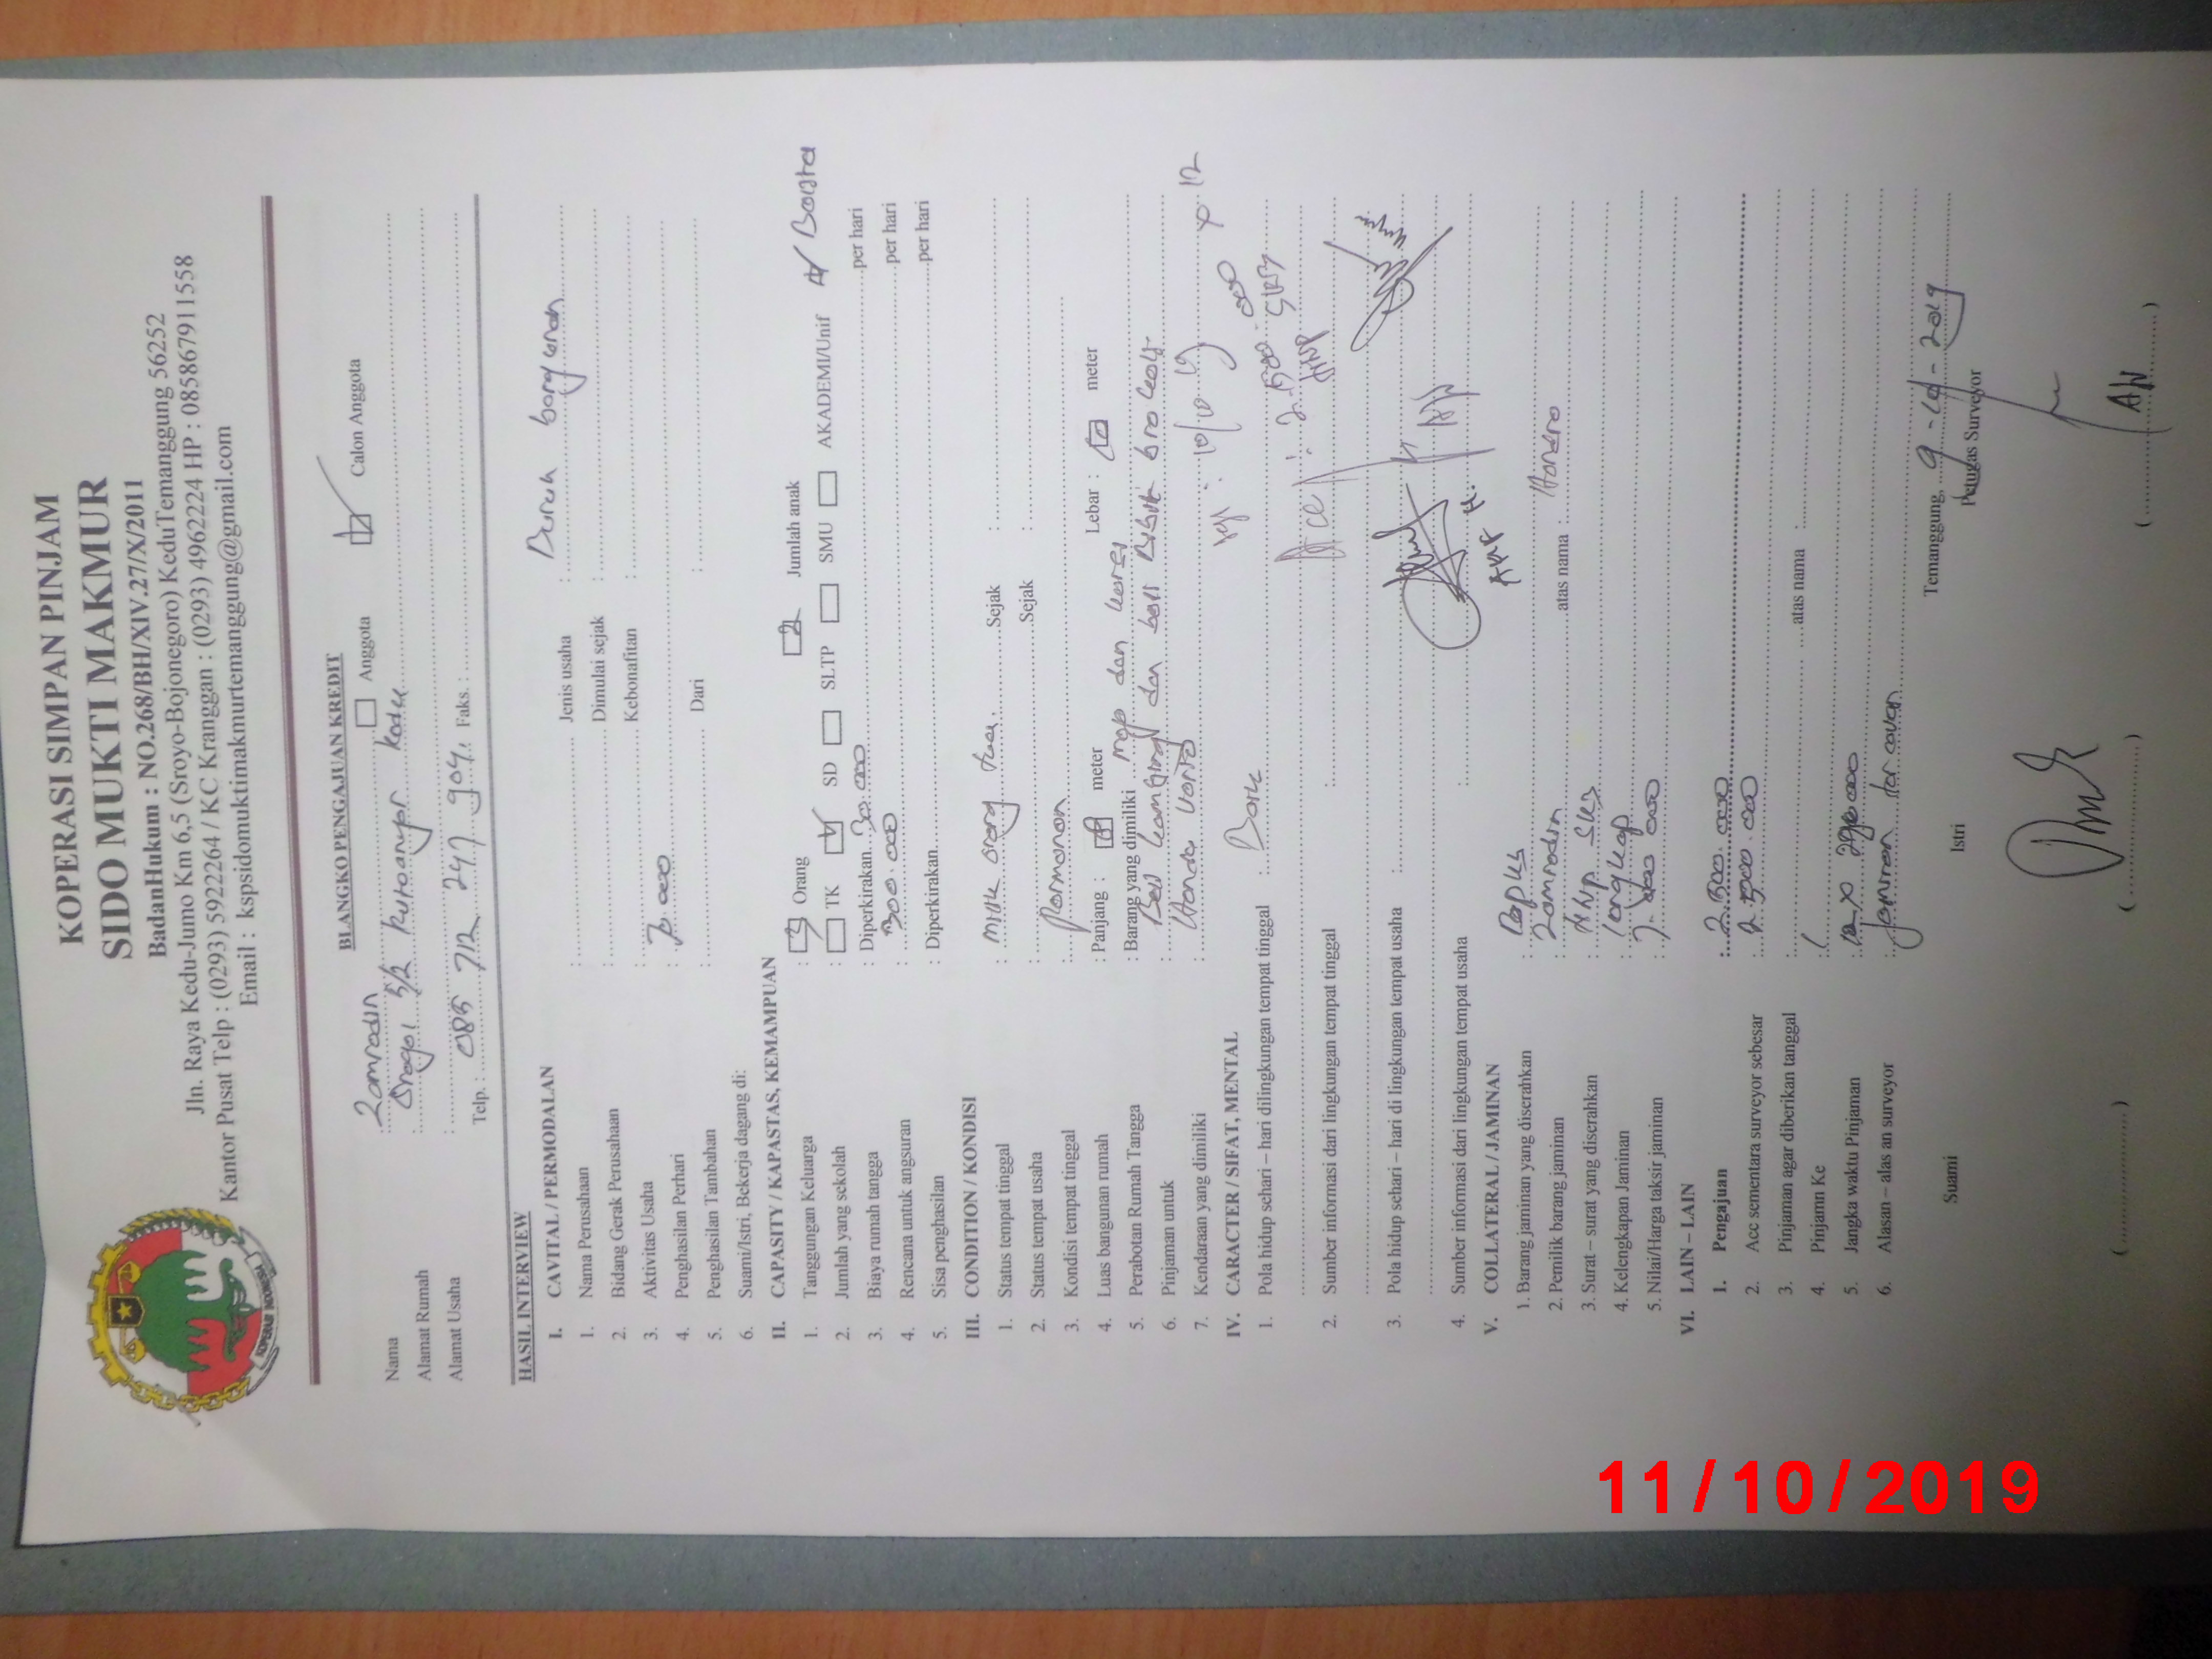 KOPERASI SIMPAN PINJAM
SIDO MUKTI MAKMUR
BadanHukum : NO.268/BH/XIV.27/X/2011
Jln. Raya Kedu-Jumo Km 6,5 (Sroyo-Bojonegoro) KeduTemanggung 56252
Kantor Pusat Telp : (0293) 5922264 / KC Kranggan : (0293) 4962224 HP : 085867911558
Email : kspsidomuktimakmurtemanggung@gmail.com
KOPERASI INDONESIA
BLANGKO PENGAJUAN KREDIT
Anggota Calon Anggota
Nama : Zamrodin
Alamat Rumah : 5/2 kedu
Alamat Usaha :
Telp. : 085 712 247 904. Faks. :
HASIL INTERVIEW
I. CAVITAL / PERMODALAN
1. Nama Perusahaan : Jenis usaha : Buruh bangunan
2. Bidang Gerak Perusahaan : Dimulai sejak :
3. Aktivitas Usaha : Kebonafitan :
4. Penghasilan Perhari : 70.000
5. Penghasilan Tambahan : Dari :
6. Suami/Istri, Bekerja dagang di:
II. CAPASITY / KAPASTAS, KEMAMPUAN
1. Tanggungan Keluarga : 3 Orang 2 Jumlah anak
2. Jumlah yang sekolah : TK SD SLTP SMU AKADEMI/Unif
3. Biaya rumah tangga : Diperkirakan 30.000 per hari
4. Rencana untuk angsuran : 300.000 per hari
5. Sisa penghasilan : Diperkirakan per hari
III. CONDITION / KONDISI
1. Status tempat tinggal : milik orang tua. Sejak :
2. Status tempat usaha : Sejak :
3. Kondisi tempat tinggal : permanen
4. Luas bangunan rumah : Panjang : meter Lebar : meter
5. Perabotan Rumah Tangga : Barang yang dimiliki meja dan kursi
6. Pinjaman untuk : Beli dan beli Bibit
7. Kendaraan yang dimiliki : Honda vario
10/10 19
Acc : 2.500.000 x 12
IV. CARACTER / SIFAT, MENTAL
1. Pola hidup sehari – hari dilingkungan tempat tinggal : Baik
2. Sumber informasi dari lingkungan tempat tinggal :
3. Pola hidup sehari – hari di lingkungan tempat usaha :
4. Sumber informasi dari lingkungan tempat usaha :
V. COLLATERAL / JAMINAN
1. Barang jaminan yang diserahkan :
2. Pemilik barang jaminan : Zamrodin atas nama : Hendro
3. Surat – surat yang diserahkan :
4. Kelengkapan Jaminan : lengkap
5. Nilai/Harga taksir jaminan :
VI. LAIN – LAIN
1. Pengajuan : 2.500.000
2. Acc sementara surveyor sebesar : 2.500.000
3. Pinjaman agar diberikan tanggal : atas nama :
4. Pinjamn Ke : 1
5. Jangka waktu Pinjaman : 12 x
6. Alasan – alas an surveyor : jaminan ter cover
Temanggung, 9 - 10 - 2019
Suami Istri Petugas Surveyor
11/10/2019